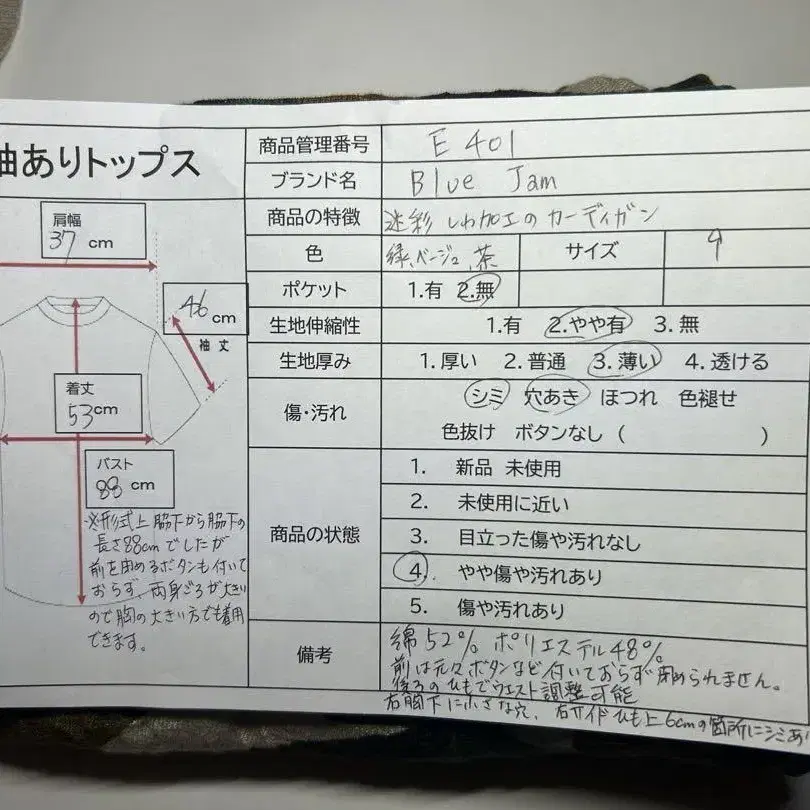 袖ありトップス
肩幅
37 cm
46 cm
袖丈
着丈
53 cm
バスト
88 cm
※形式上脇下から脇下の
長さ88cmでしたが
前を閉めるボタンも付いて
おらず、両身ごろが大きい
ので胸の大きい方でも着用
できます。
商品管理番号 E 401
ブランド名 Blue Jam
商品の特徴 迷彩 しわ加工のカーディガン
色 緑、ベージュ、茶 サイズ
ポケット 1.有 2.無
生地伸縮性 1.有 2.やや有 3.無
生地厚み 1.厚い 2.普通 3.薄い 4.透ける
傷・汚れ シミ 穴あき ほつれ 色褪せ
色抜け ボタンなし ( )
商品の状態
1. 新品 未使用
2. 未使用に近い
3. 目立った傷や汚れなし
4. やや傷や汚れあり
5. 傷や汚れあり
備考 綿52% ポリエステル48%
前は元々ボタンなど付いておらず閉められません。
後ろのひもでウエスト調整可能
右胸下に小さな穴、右サイドひも上6cmの箇所にシミあ